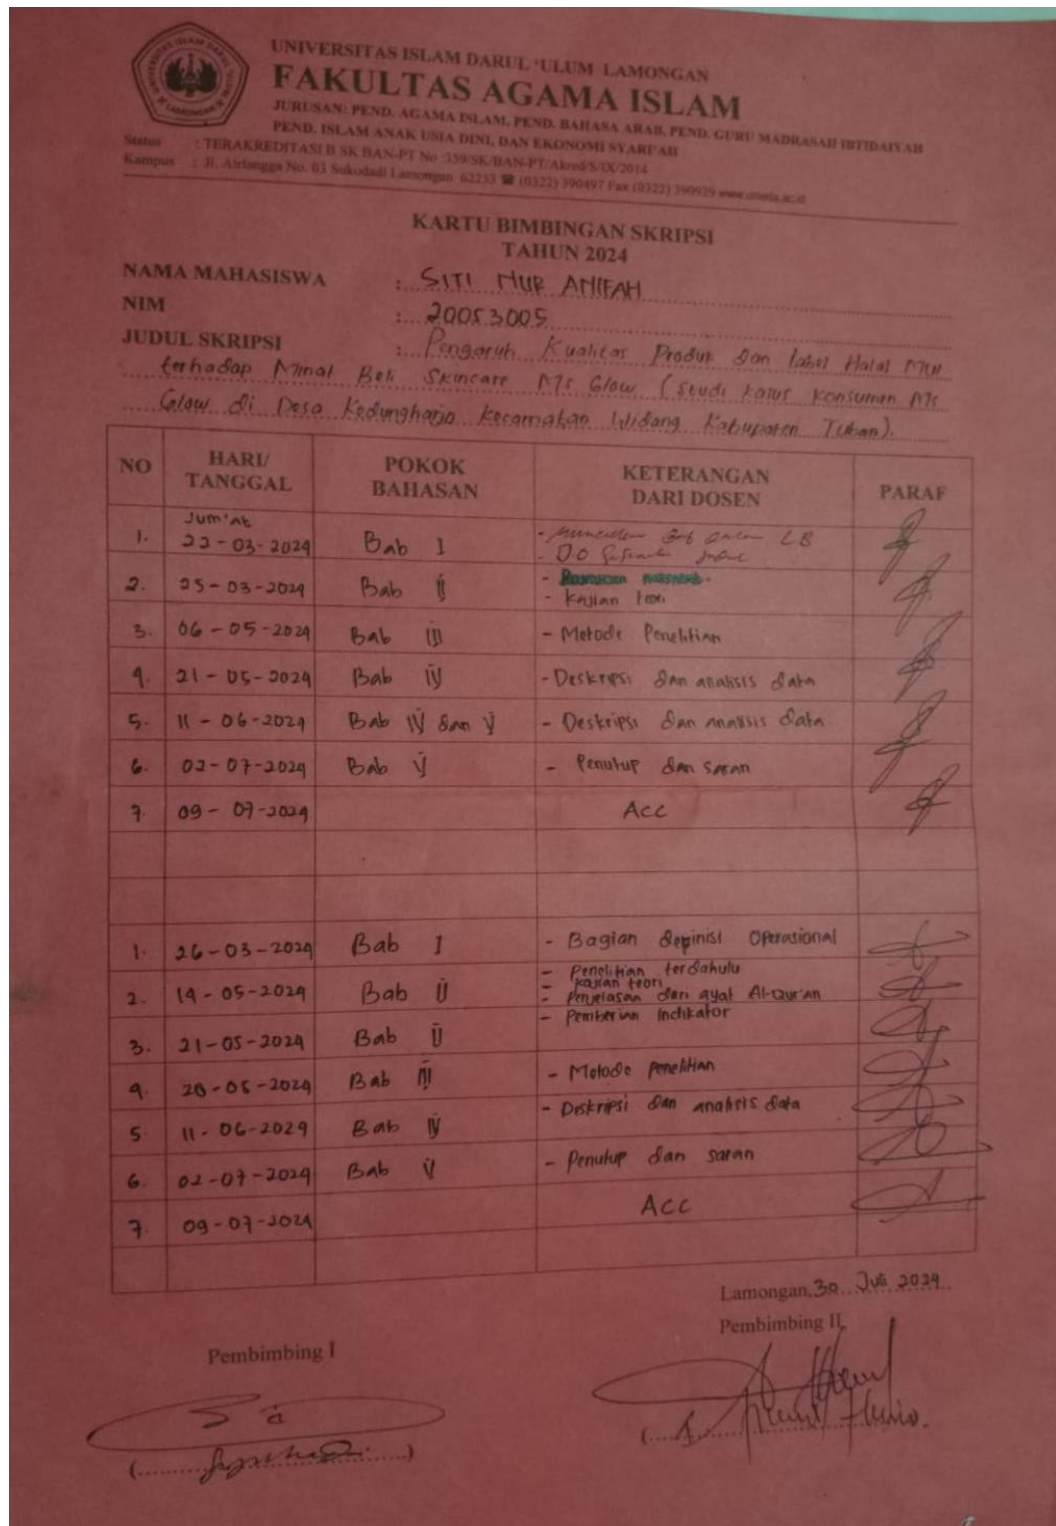 UNIVERSITAS ISLAM DARUL 'ULUM LAMONGAN
FAKULTAS AGAMA ISLAM
JURUSAN: PEND. AGAMA ISLAM, PEND. BAHASA ARAB, PEND. GURU MADRASAH IBTIDAIYAH
PEND. ISLAM ANAK USIA DINI, DAN EKONOMI SYARI'AH
Status : TERAKREDITASI B SK BAN-PT No :359/SK/BAN-PT/Akred/S/IX/2014
Kampus : Jl. Airlangga No. 03 Sukodadi Lamongan 62253 ☎ (0322) 390497 Fax (0322) 390929 www.unisda.ac.id
KARTU BIMBINGAN SKRIPSI
TAHUN 2024
NAMA MAHASISWA : SITI NUR ANIFAH
NIM : 20053005
JUDUL SKRIPSI : Pengaruh Kualitas Produk dan label Halal MUI
terhadap Minat Beli Skincare Ms Glow (Studi kasus konsumen Ms
Glow di Desa Kedungharjo Kecamatan Widang Kabupaten Tuban).
NO HARI/ TANGGAL POKOK BAHASAN KETERANGAN DARI DOSEN PARAF
1. Jum'at 22-03-2024 Bab I - LB
2. 25-03-2024 Bab II - Kajian teori
3. 06-05-2024 Bab III - Metode Penelitian
4. 21-05-2024 Bab IV - Deskripsi dan analisis data
5. 11-06-2024 Bab IV dan V - Deskripsi dan analisis data
6. 02-07-2024 Bab V - Penutup dan saran
7. 09-07-2024 Acc
1. 26-03-2024 Bab I - Bagian depinisi Operasional
2. 14-05-2024 Bab II - Penelitian terdahulu
- Kajian teori
- Penjelasan dari ayat Al-Qur'an
3. 21-05-2024 Bab II - Pemberian Indikator
4. 28-05-2024 Bab III - Metode penelitian
5. 11-06-2024 Bab IV - Deskripsi dan analisis data
6. 02-07-2024 Bab V - Penutup dan saran
7. 09-07-2024 Acc
Lamongan, 30 Juli 2024
Pembimbing I
Pembimbing II